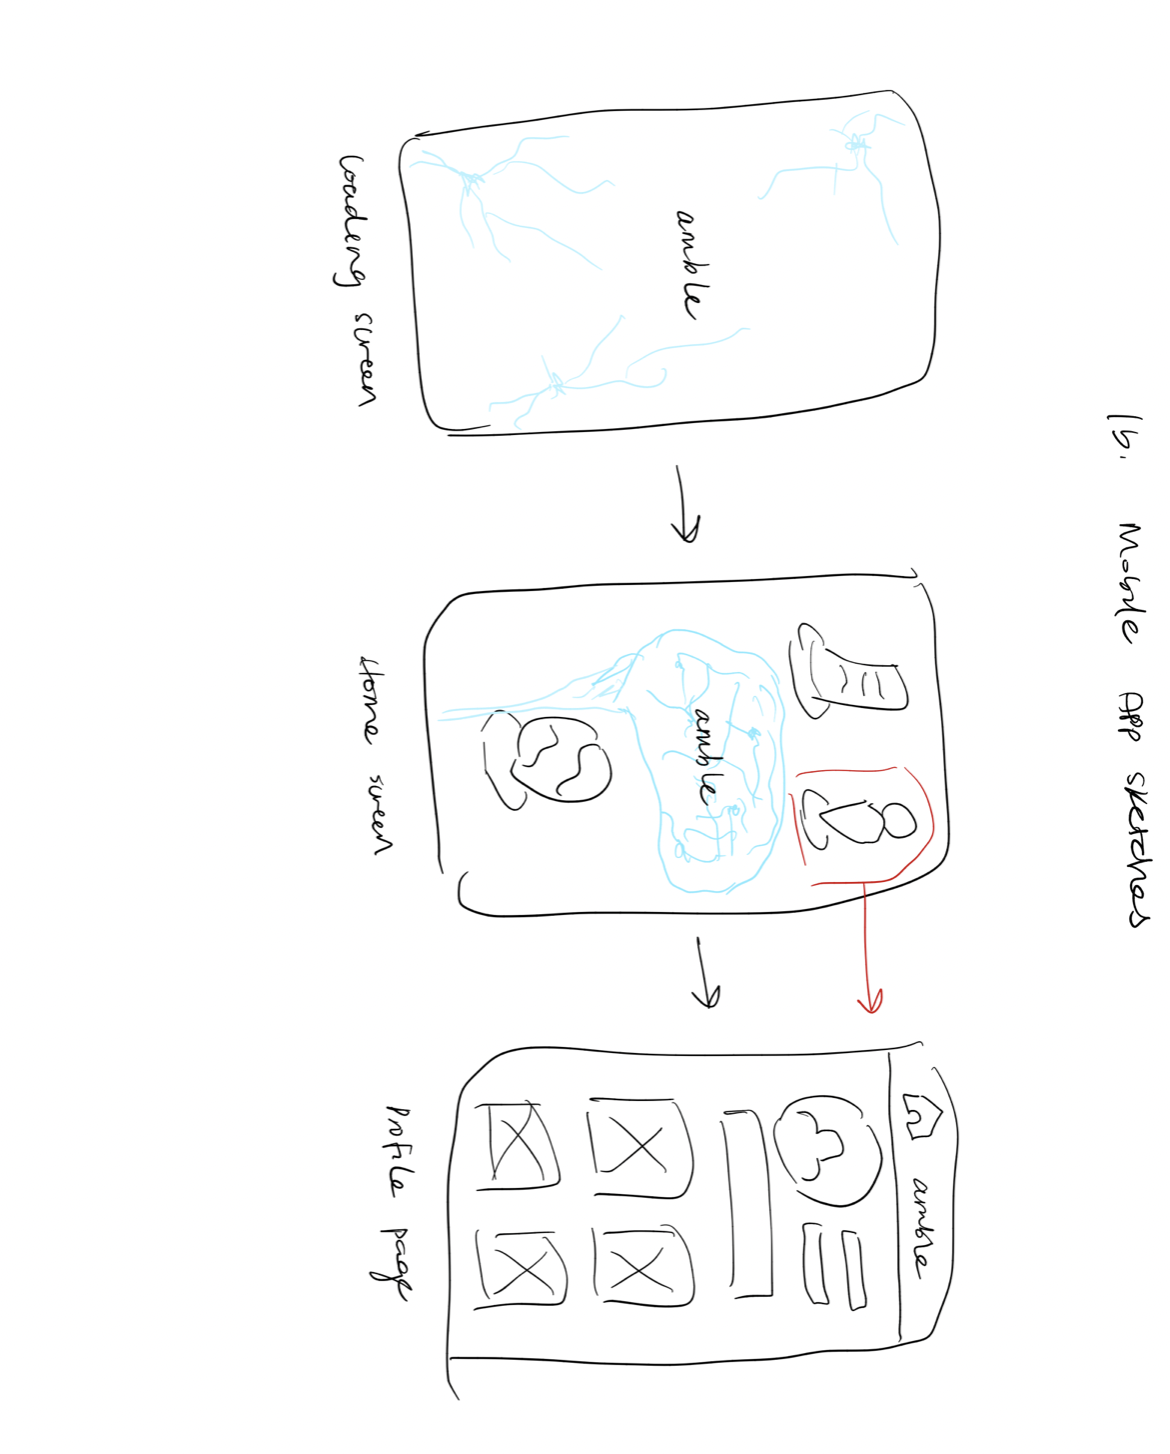 1b. Mobile App sketches
amble
Loading screen
amble
Home screen
amble
Profile page